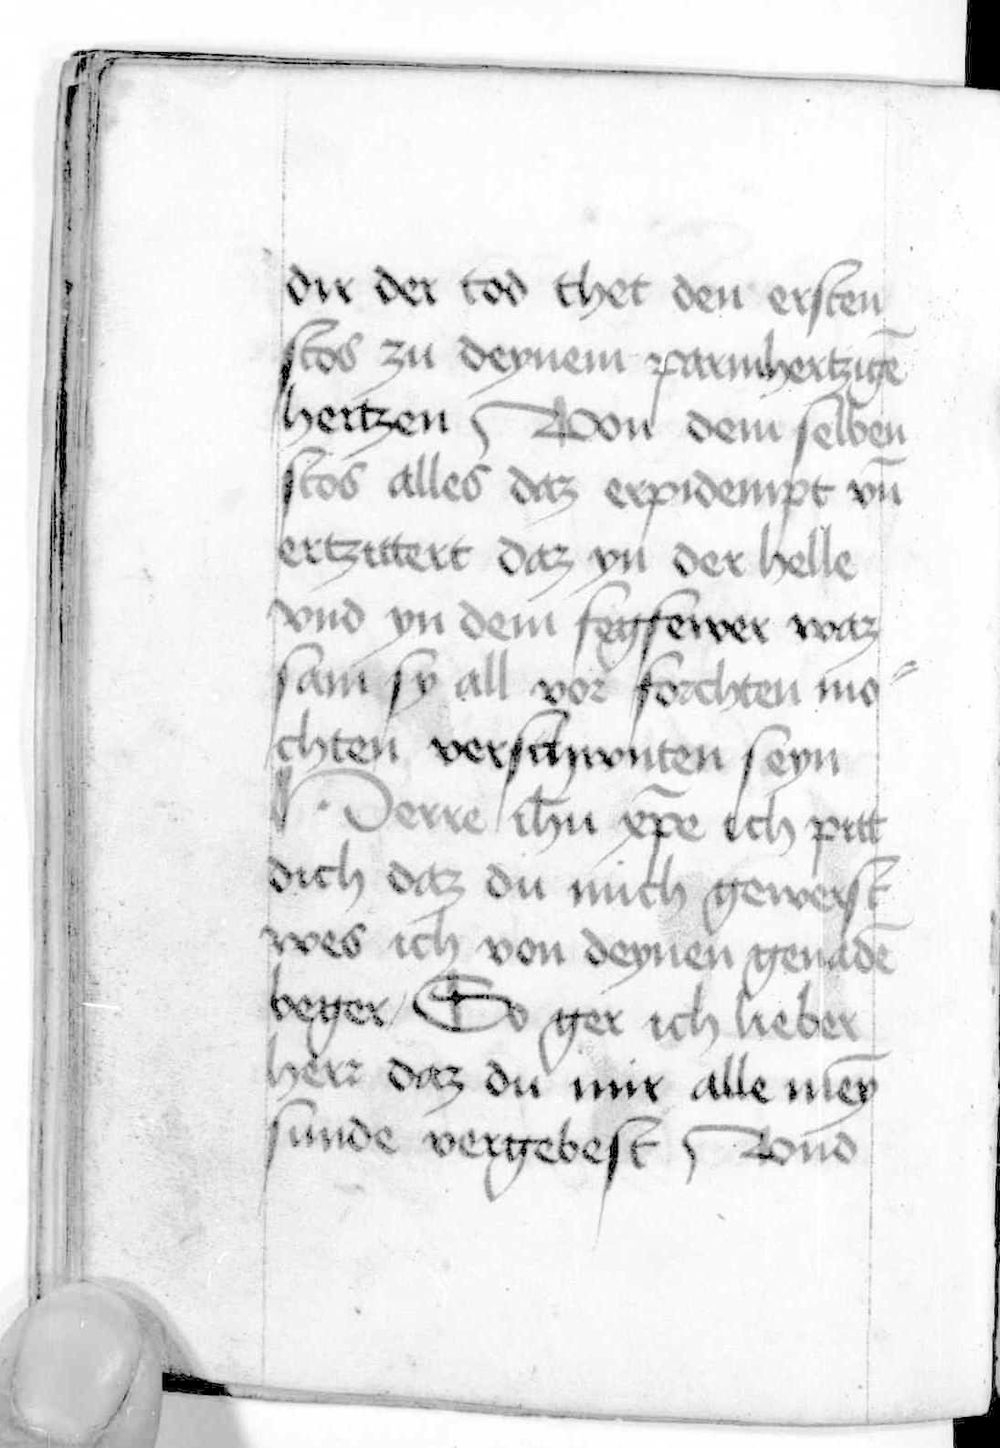 dir der tod thet den ersten
stos zu deynem parmhertzigē
hertzen Von dem selben
stos alles daz erpidempt vn̄
ertzittert daz yn der helle
vnd yn dem fegfewer waz
sam sy all vor forchten mo⸗
chten verschwnten seyn
Herre ih̄u xp̄e ich pitt
dich daz du mich gewerst
wes ich von deynen genadē
beger / So ger ich lieber
herr daz du mir alle meȳ
sunde vergebest Vnd